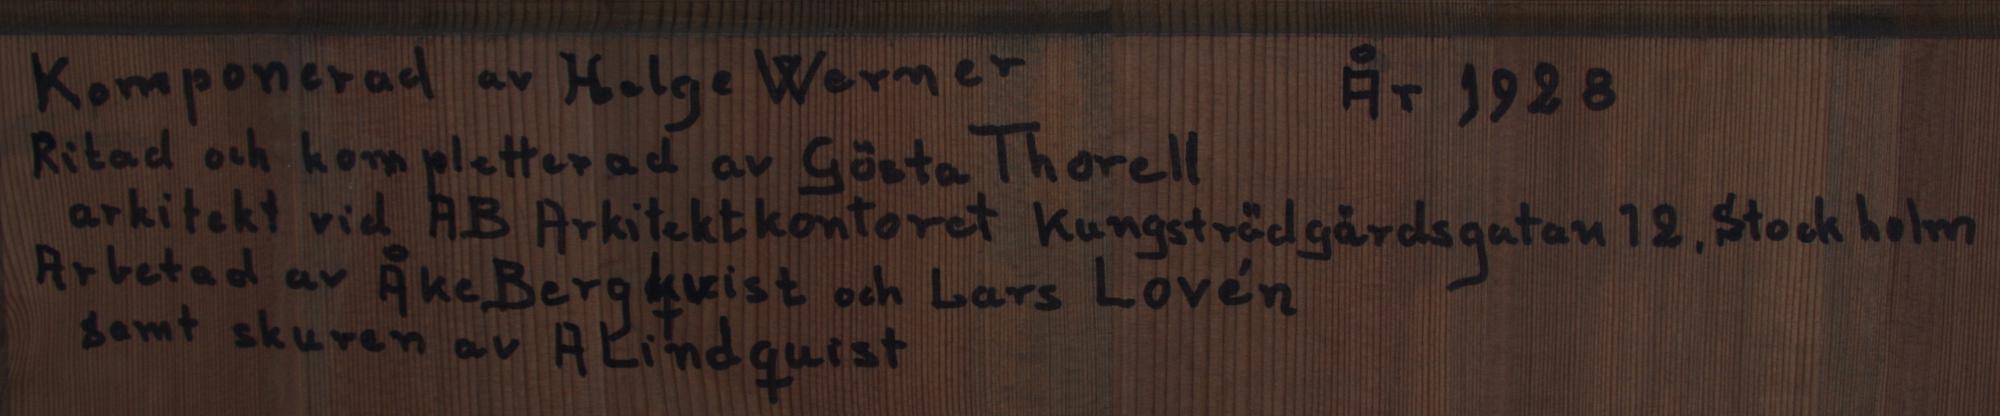 Komponerad av Helge Werner År 1928
Ritad och kompletterad av Gösta Thorell
arkitekt vid AB Arkitektkontoret Kungsträdgårdsgatan 12, Stockholm
Arbetad av Åke Bergqvist och Lars Lovén
samt skuren av A Lindquist